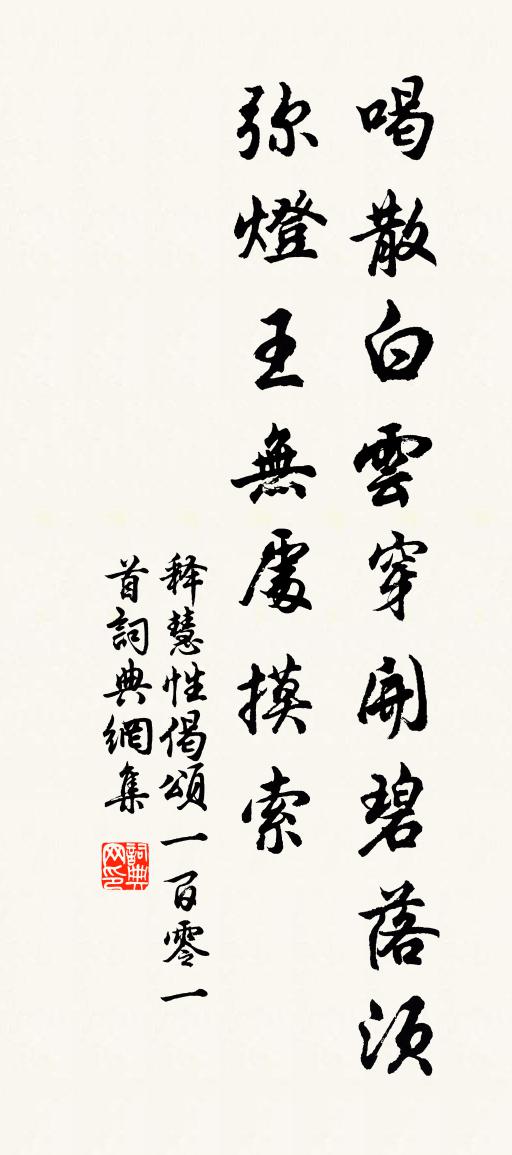 喝散白雲穿開碧落須
弥燈王無處摸索
释慧性偈頌一百零一
首詞典網集
詞典网印